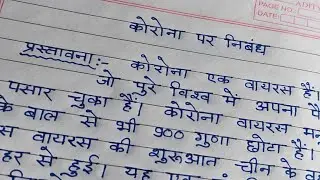 PAGE NO.
DATE
कोरोना पर निबंध
प्रस्तावना:- कोरोना एक वायरस हैं।
जो पुरे विश्व में अपना पै
पसार चुका हैं। कोरोना वायरस मन
के बाल से भी 900 गुणा छोटा हैं।
स वायरस की शुरूआत चीन के व
हर से हुई। यह